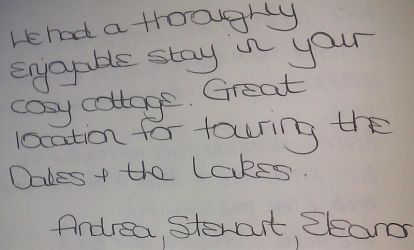 We had a thoroughly
enjoyable stay in your
cosy cottage. Great
location for touring the
Dales + the Lakes.
Andrea, Stewart, Eleanor